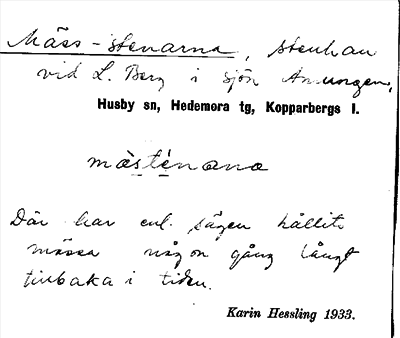 Mäss-stenarna, stenhäll
vid L. Berg i sjön Amungen,
Husby sn, Hedemora tg, Kopparbergs l.
màs̱té̱nạna
Där har enl. sägen hållits
mässa någon gång långt
tillbaka i tiden.
Karin Hessling 1933.